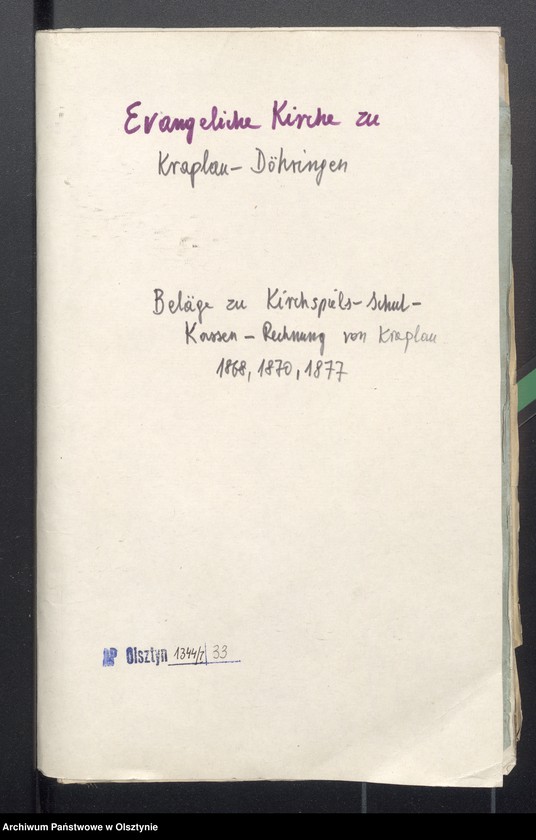 Evangeliche Kirche zu
Kraplau - Döhringen
Beläge zu Kirchspiels - Schul -
Kassen - Rechnung von Kraplau
1868, 1870, 1877
AP Olsztyn 1344/7 33
Archiwum Państwowe w Olsztynie